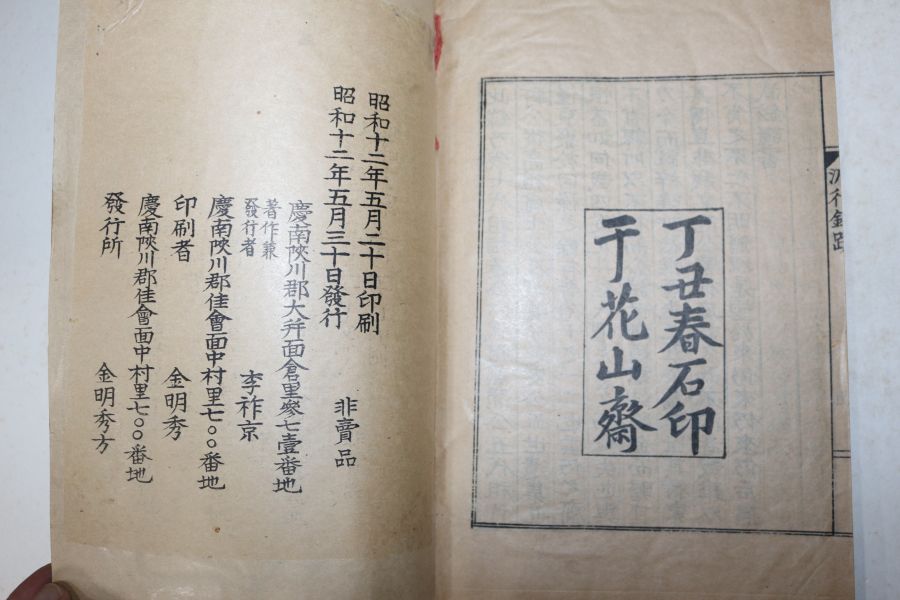 丁丑春石印
于花山齋
昭和十二年五月二十日印刷
昭和十二年五月三十日發行
非賣品
慶南陜川郡大幷面倉里參七壹番地
著作兼
發行者
李祚京
慶南陜川郡佳會面中村里七〇〇番地
印刷者
金明秀
慶南陜川郡佳會面中村里七〇〇番地
發行所
金明秀方